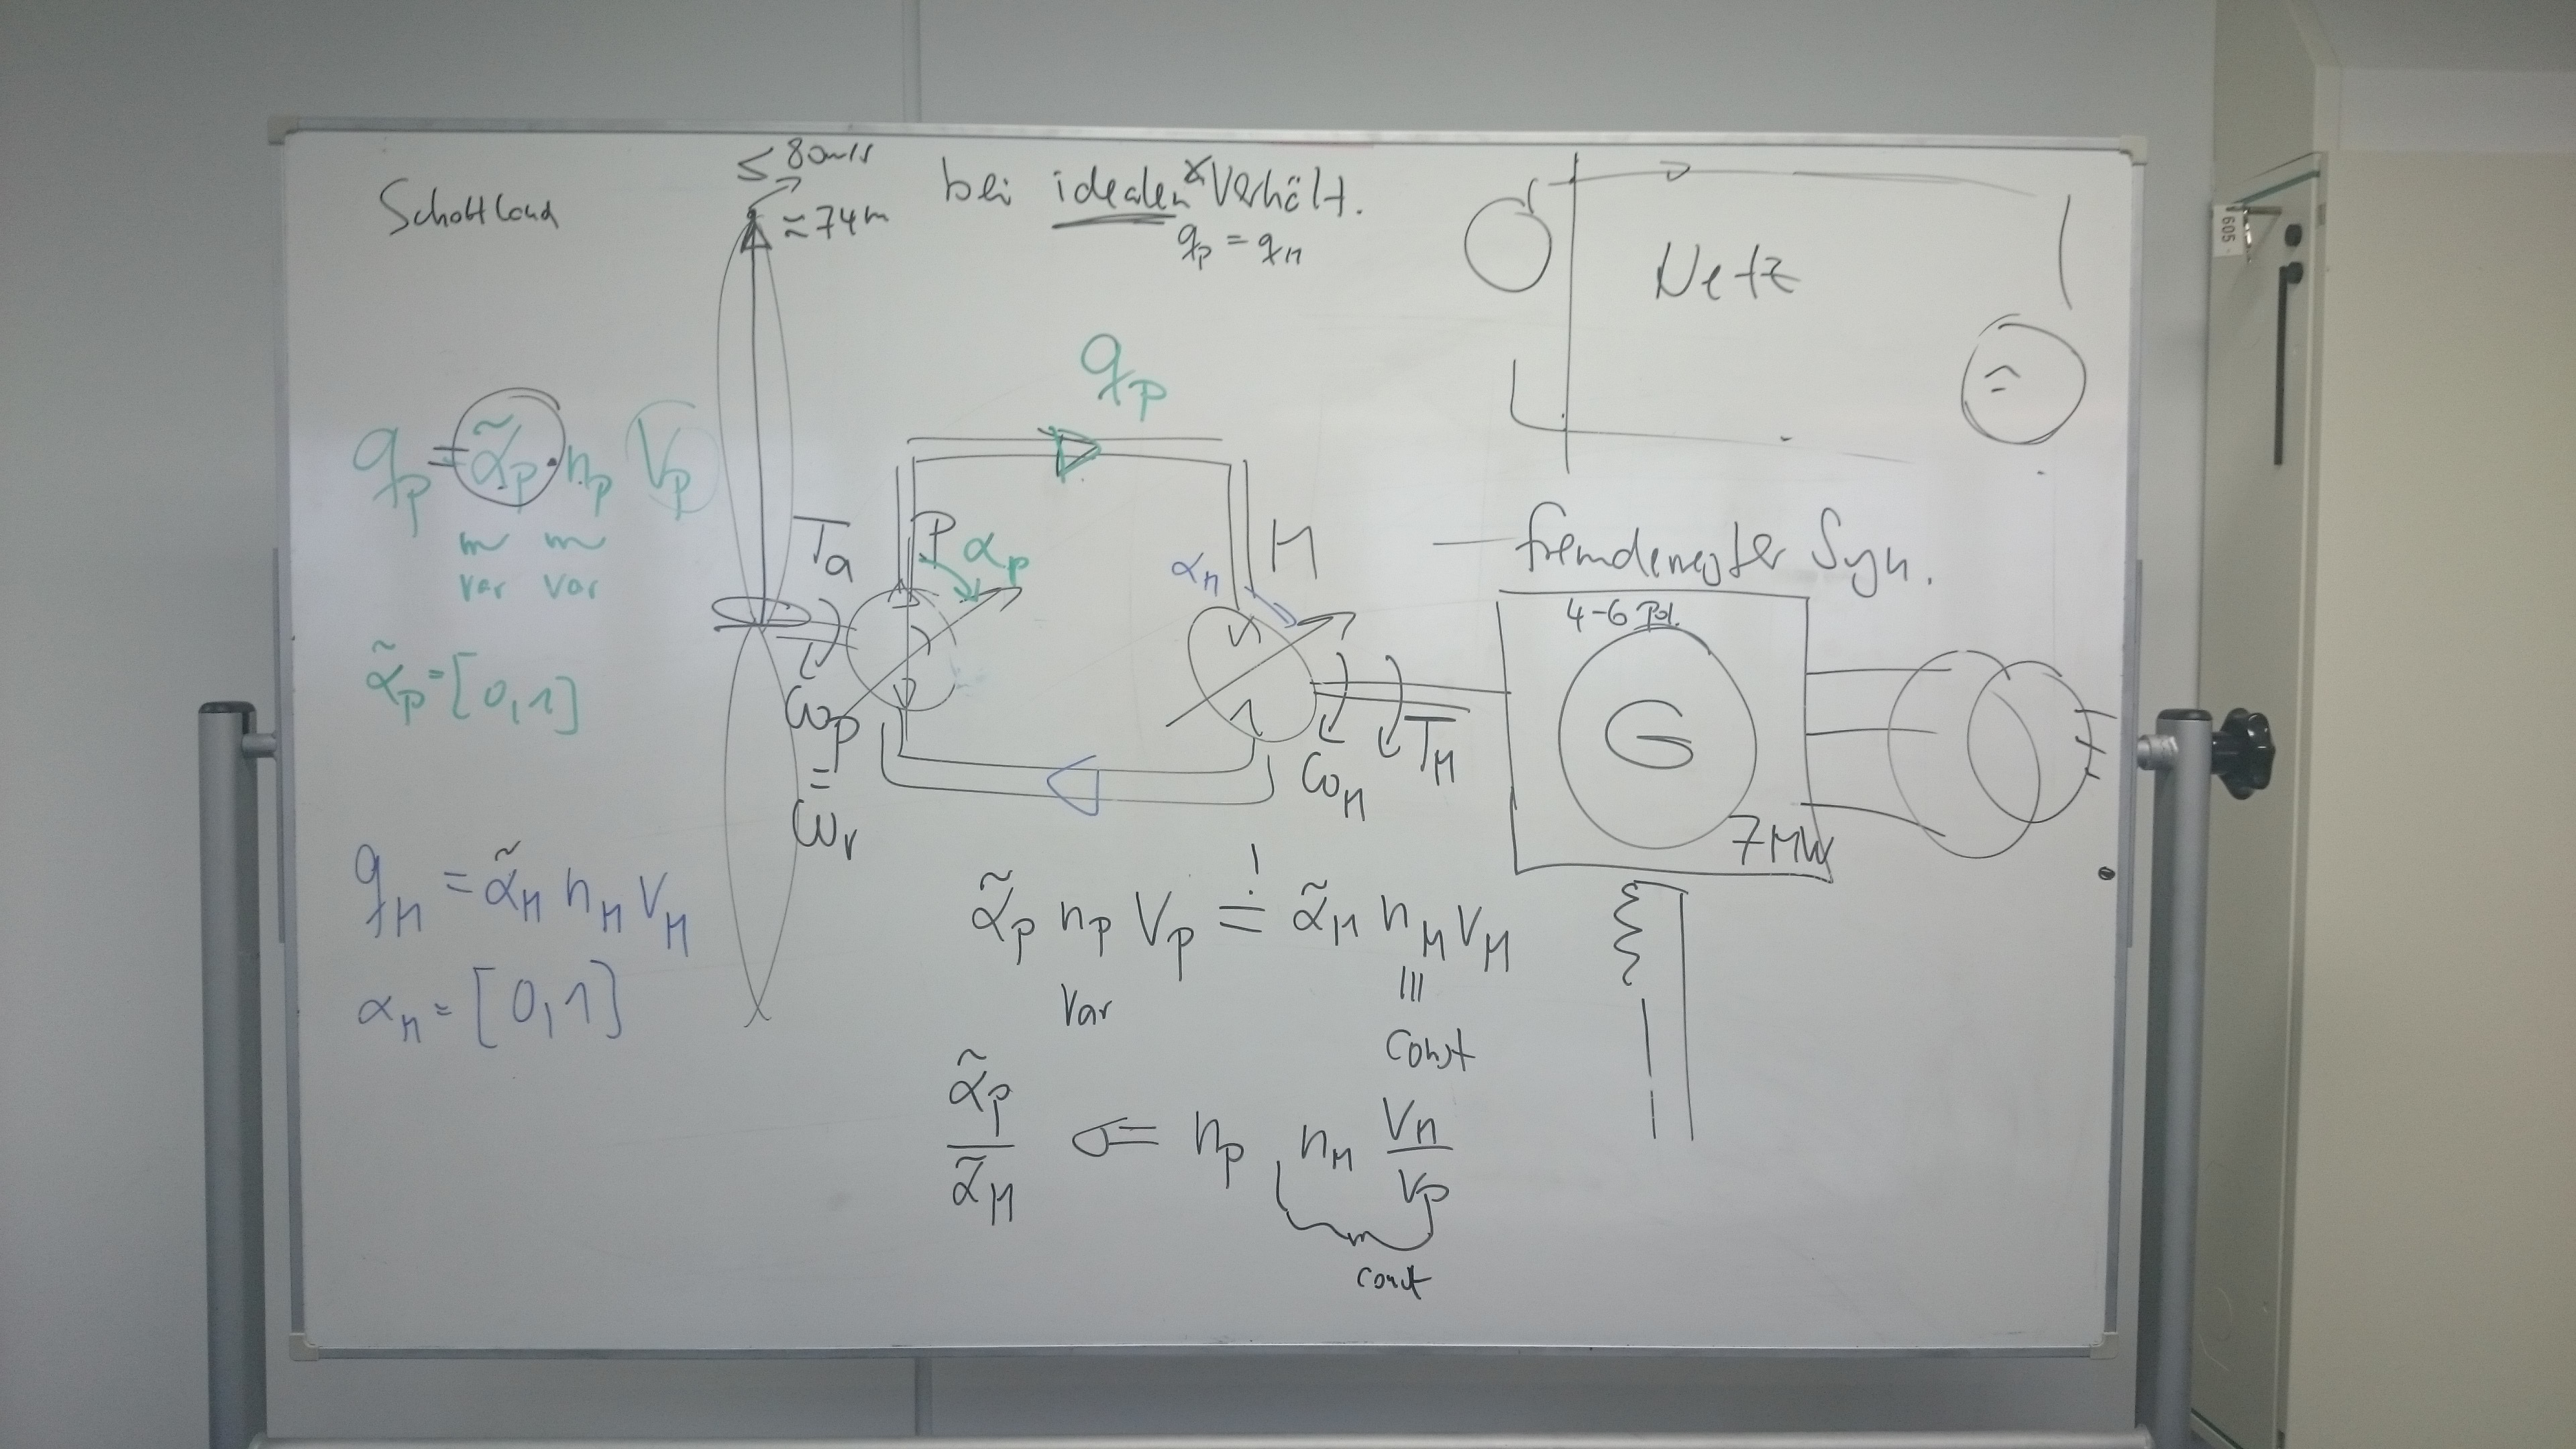 Schottland
≤ 80m/s
≈ 74m
bei idealen Verhält.
q_P = q_M
Netz
q_P
q_P = α̃_P · n_P V_P
var var
α̃_P = [0,1]
T_a
P
α_P
ω_P
=
ω_r
α_M
M
ω_M
T_M
fremderregter Syn.
4-6 Pol.
G
7MW
q_M = α̃_M n_M V_M
α_M = [0,1]
α̃_P n_P V_P =! α̃_M n_M V_M
Var
const
α̃_P / α̃_M = n_P n_M V_M / V_P
const
605